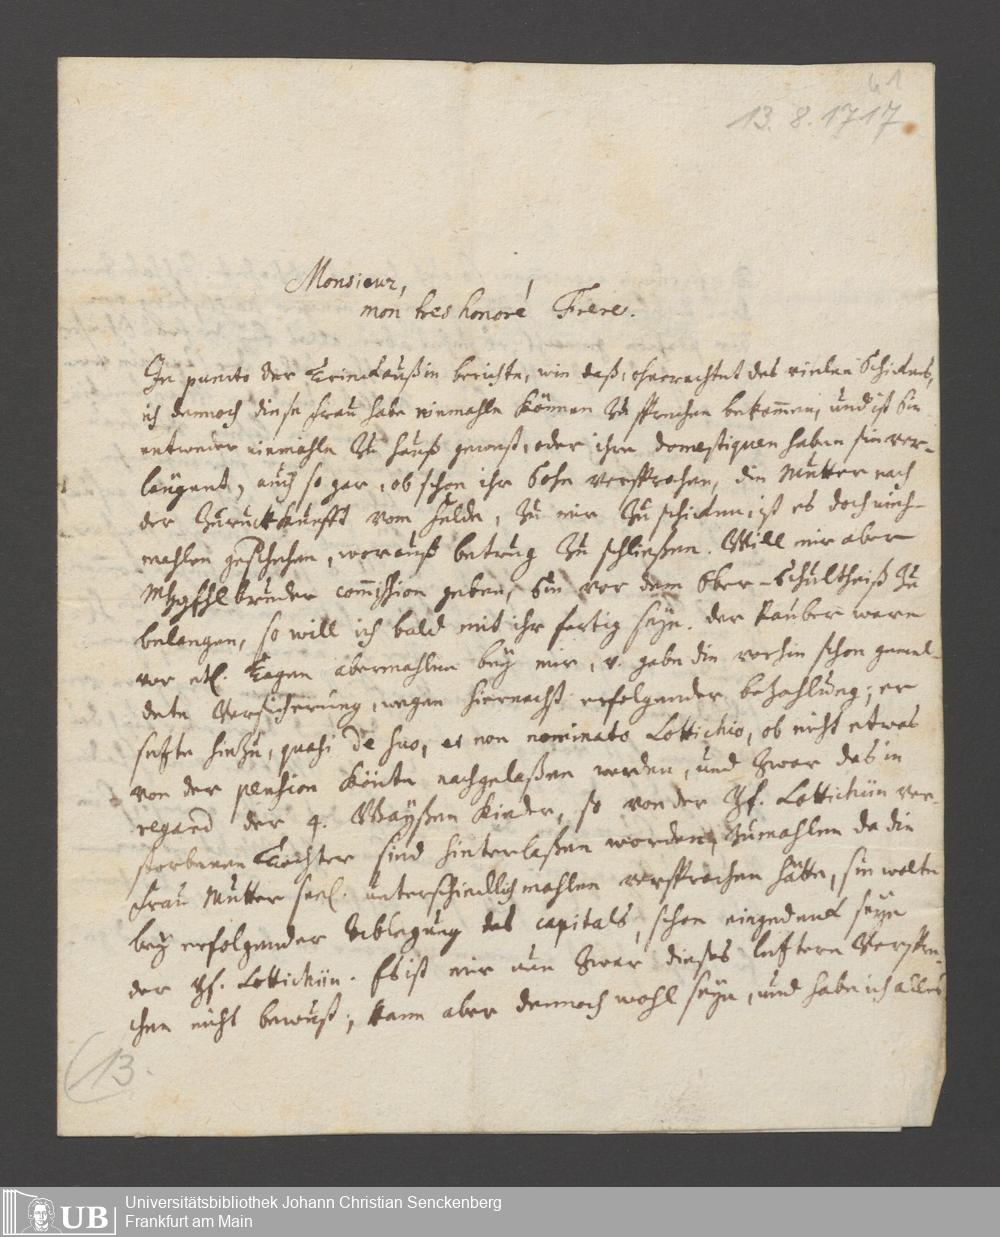 41
13. 8. 1717
Monsieur,
mon tres honoré Frere.
In puncto der berichte, wie daß, ohnerachtet des vielen Schickens,
ich dennoch diese Frau habe niemahls können zu sprechen bekommen, und ist Sie
entweder niemahls zu hauß geweßt, oder ihre domestiquen haben sie ver-
läugnet, auch so gar, ob schon ihr Sohn versprochen, die Mutter nach
der Zurückkunfft vom felde, zu mir zu schicken, ist es doch nieh-
mahlen geschehen, worauß betrug zu schließen. Will mir aber
bruder commission geben, Sie vor dem Ober-Schultheiß zu
belangen, so will ich bald mit ihr fertig seyn. der Rauber ware
vor etl. Tagen abermahlen bey mir, v. gabe die vorhin schon gemel-
dete Versicherung, wegen hiernechst erfolgender bezahlung; er
setzte hinzu, quasi de suo, et non nominato Lottichio, ob nicht etwas
von der pension könte nachgelaßen werden, und zwar das in
regard der 4. Wayßen Kinder, so von der Fr. Lottichiin ver-
storbenen Tochter sind hinterlaßen worden, zumahlen da die
Frau Mutter seel. unterschiedlichmahlen versprochen hätte, sie wolte
bey erfolgender Ablegung des capitals, schon eingedenck seyn
der Fr. Lottichiin. Es ist mir nun zwar dieses letztere Verspre-
chen nicht bewust, kann aber dennoch wohl seyn, und habe ich alles
13.
UB
Universitätsbibliothek Johann Christian Senckenberg
Frankfurt am Main